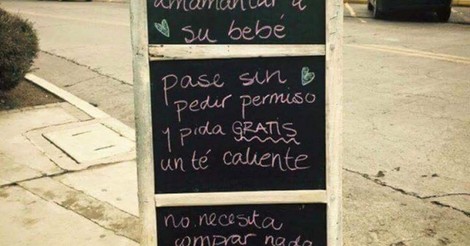 amamantar a
su bebé
pase sin
pedir permiso
y pida GRATIS
un té caliente
no necesita
comprar nada